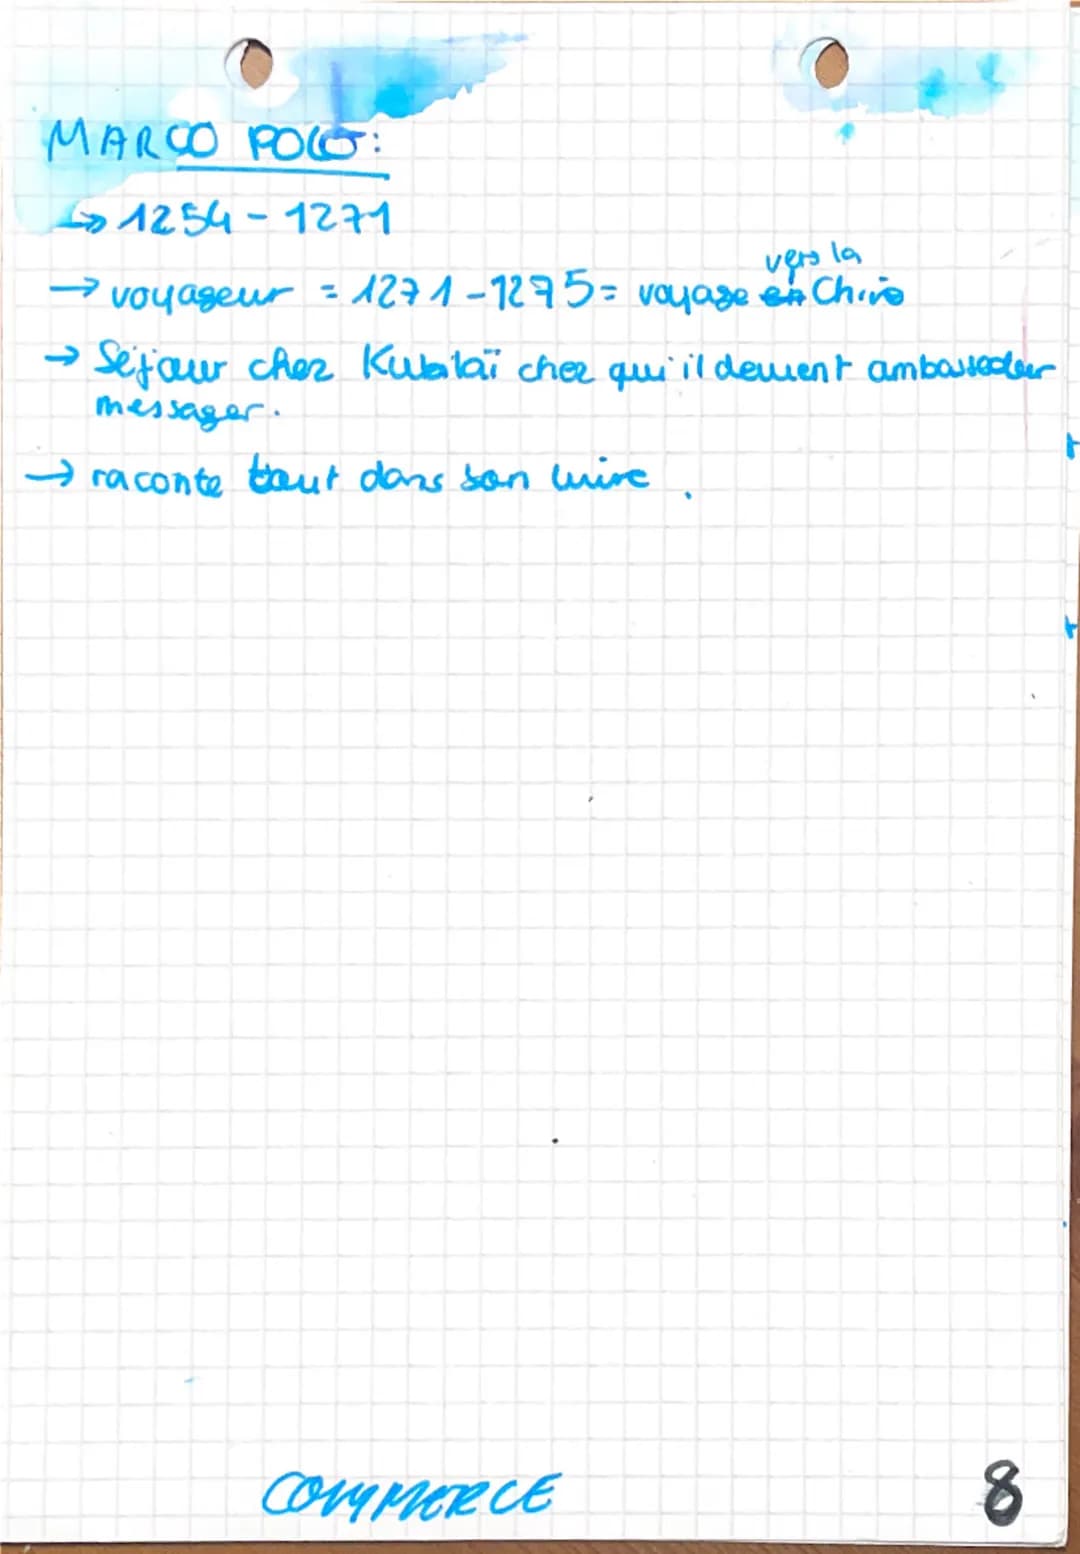 MARCO POLO:
↳ 1254 - 1271
→ voyageur = 1271 - 1275 = voyage en vers la Chine
→ Séjour chez Kubilaï chez qui il devient ambassadeur
messager.
→ raconte tout dans son livre.
COMMERCE
8